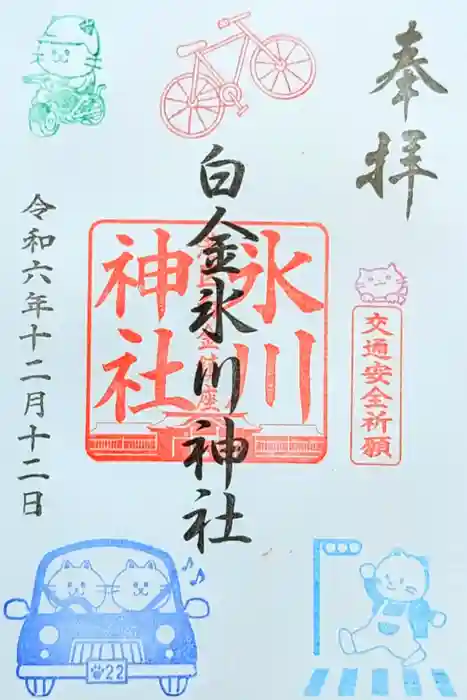 奉拝
交通安全祈願
白金氷川神社
氷川
神社
令和六年十二月十二日
22